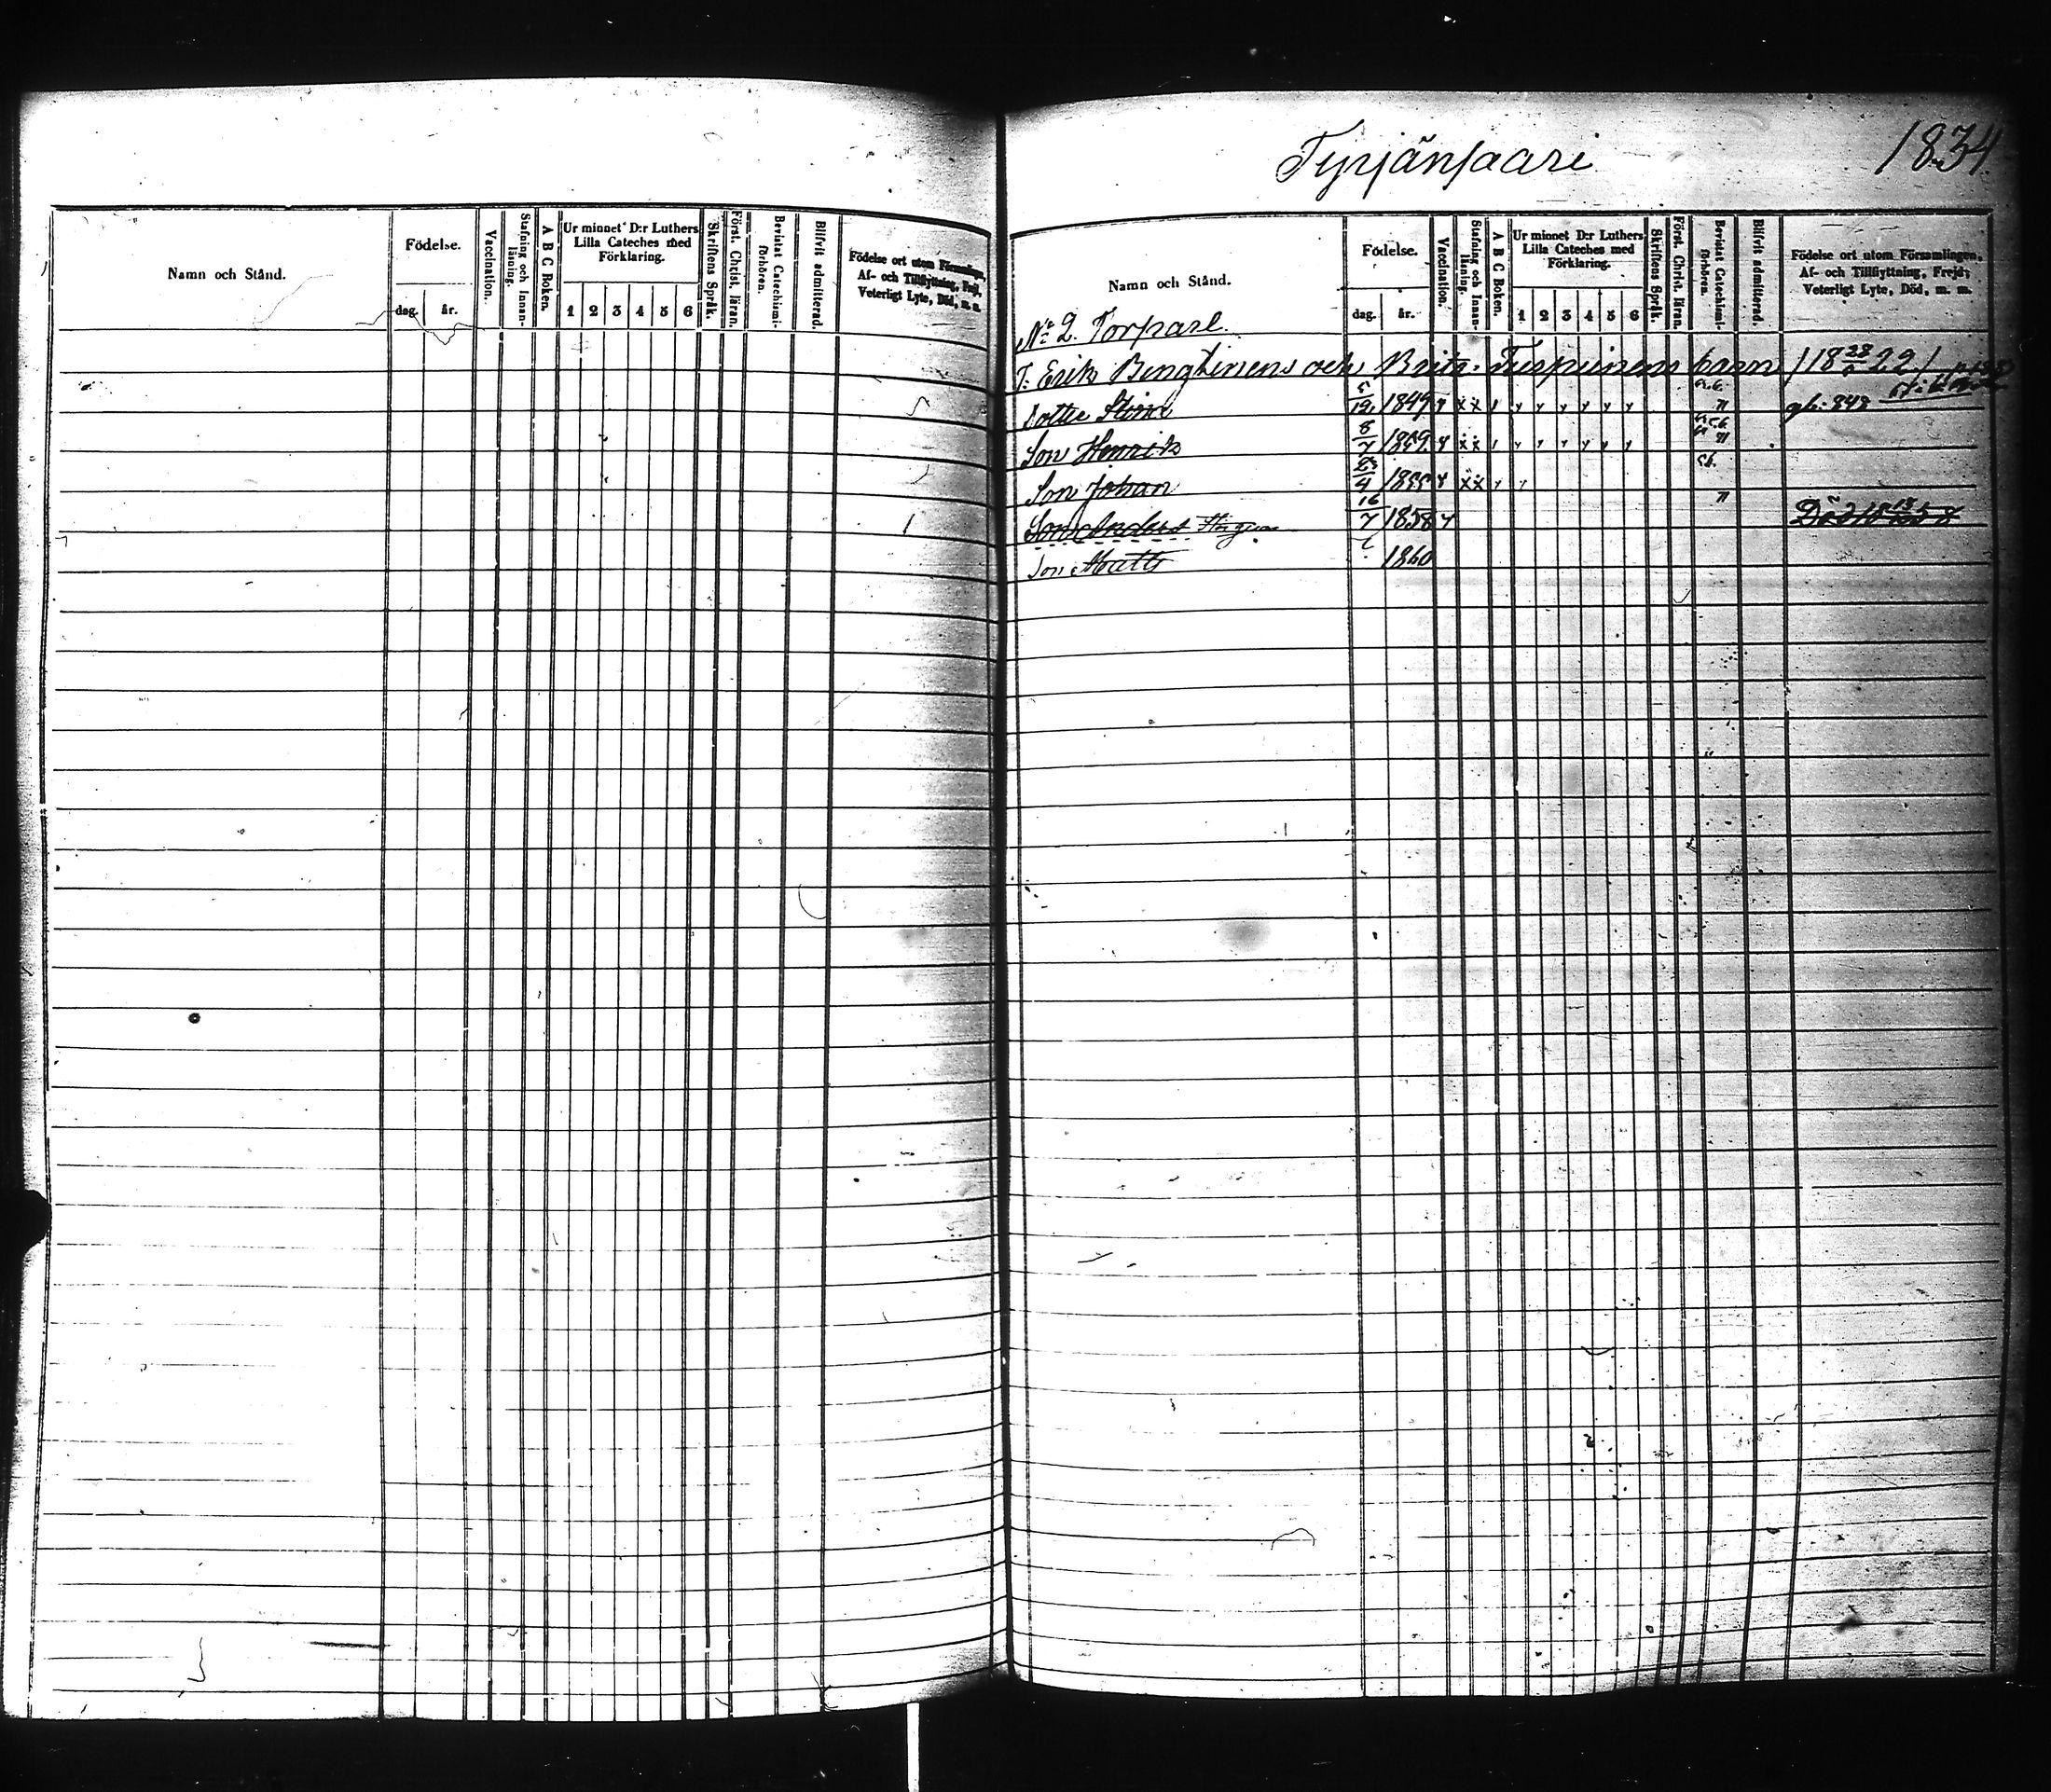 Tyrjänsaari
1834.
Namn och Stånd.
Födelse.
dag.
år.
Vaccination.
Stafning och Innan-läsning.
A B C Boken.
Ur minnet D:r Luthers
Lilla Cateches med
Förklaring.
1 2 3 4 5 6
Skriftens Språk.
Först. Christ. läran.
Bevistat Catechismi-förhören.
Blifvit admitterad.
Födelse ort utom Församlingen,
Af- och Tillflyttning, Frejd,
Veterligt Lyte, Död, m. m.
Namn och Stånd.
Födelse.
dag.
år.
Vaccination.
Stafning och Innan-läsning.
A B C Boken.
Ur minnet D:r Luthers
Lilla Cateches med
Förklaring.
1 2 3 4 5 6
Skriftens Språk.
Först. Christ. läran.
Bevistat Catechismi-förhören.
Blifvit admitterad.
Födelse ort utom Församlingen,
Af- och Tillflyttning, Frejd,
Veterligt Lyte, Död, m. m.
No 2. Torpare.
T: Erik Bengtinens och Brita barn
Dotter Stina 5/12 1849
Son Henrik 8/7
Son Johan
Son Anders 16/7 1858
Son Matts 1860